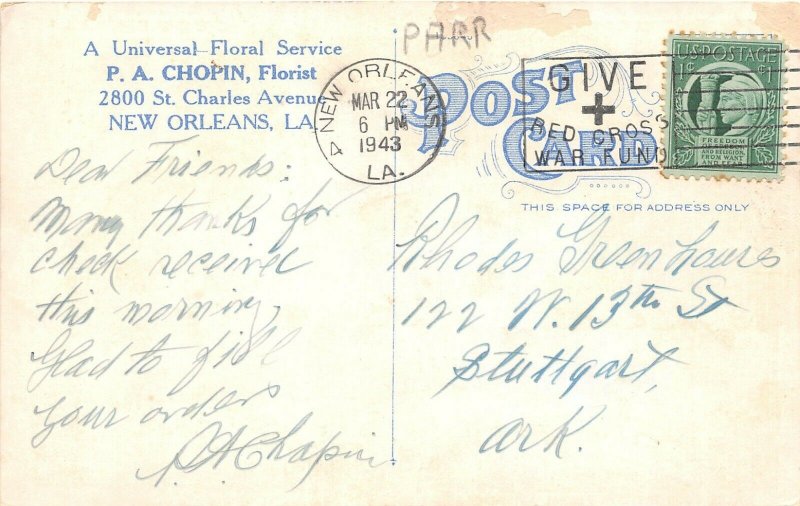 A Universal Floral Service
P. A. CHOPIN, Florist
2800 St. Charles Avenue
NEW ORLEANS, LA.
PARR
NEW ORLEANS
4
MAR 22
6 PM
1943
LA.
POST
CARD
GIVE
+
RED CROSS
WAR FUND
U.S. POSTAGE
1¢ 1¢
FREEDOM
OF SPEECH
AND RELIGION,
FROM WANT
AND FEAR
THIS SPACE FOR ADDRESS ONLY
Dear Friends:
Many thanks for
check received
this morning,
Glad to fill
your orders
P A Chopin
Rhodes Greenhouses
122 W. 13th St
Stuttgart,
Ark.